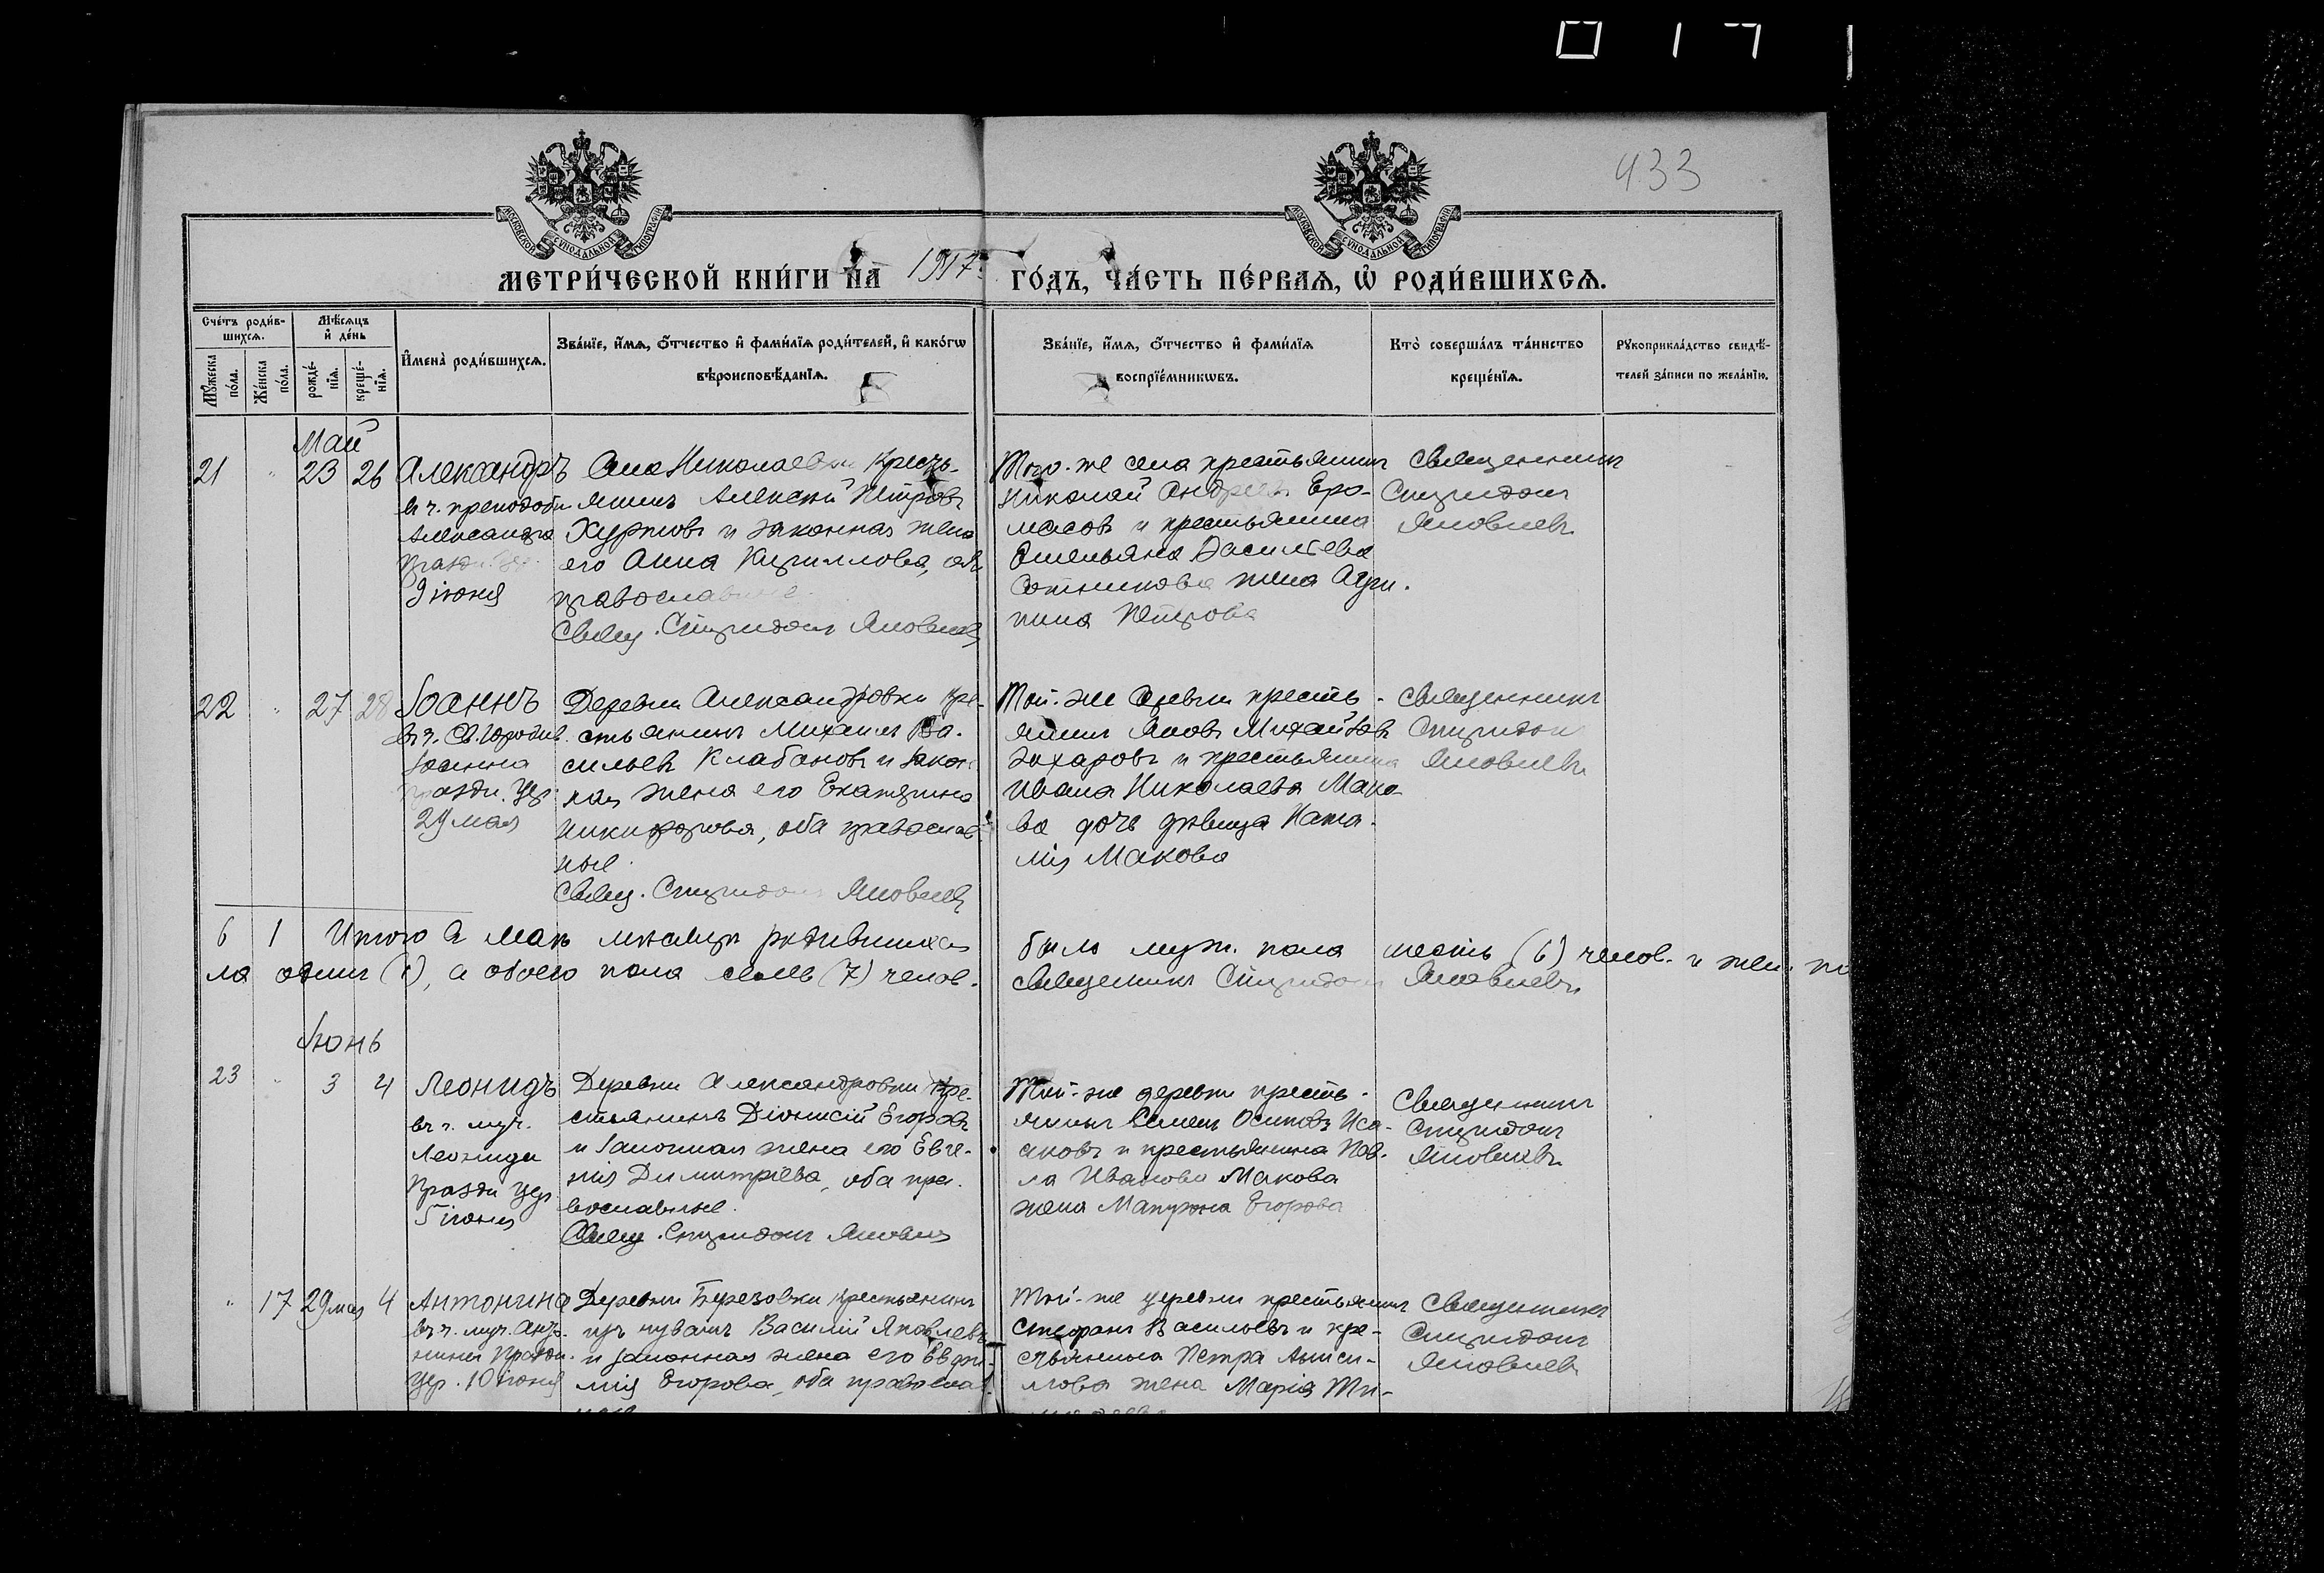 433
МОСКОВСКОЙ СѴНОДАЛЬНОЙ ТИПОГРАФІИ
МОСКОВСКОЙ СѴНОДАЛЬНОЙ ТИПОГРАФІИ
МЕТРИ́ЧЕСКОЙ КНИ́ГИ НА 1917 ГО́ДЪ, ЧА́СТЬ ПЕ́РВАЯ, Ѡ҆ РОДИ́ВШИХСЯ.
Сче́тъ роди́в-
шихся.
Мѣ́сяцъ
и҆ де́нь
Мꙋ́жеска
по́ла.
Же́нска
по́ла.
рожде́-
нїѧ.
креще́-
нїѧ.
И҆мена̀ роди́вшихся.
Зва́нїе, и҆́мѧ, ѻ҆́тчество и҆ фами́лїѧ роди́телей, и҆ како́гѡ
вѣроисповѣ́данїѧ.
Зва́нїе, и҆́мѧ, ѻ҆́тчество и҆ фами́лїѧ
воспрїе́мникѡвъ.
Кто̀ соверша́лъ та́инство
креще́нїѧ.
Рꙋкоприкла́дство свидѣ́-
телей за́писи по жела́нїю.
Май
21 " 23 26 Александръ
въ ч. преподобн
Александра
9 іюня
Села Николаевки кресть-
янинъ Алексѣй Петровъ
и законная жена
его Анна Кириллова, оба
православные
Свящ. Спиридонъ Яковлевъ
Того-же села крестьянинъ
Николай Андреевъ Ера-
масовъ и крестьянина
Емельяна Васильева
Сотникова жена Агри-
пина Петрова
Священникъ
Спиридонъ
Яковлевъ
22 " 27 28 Іоаннъ
въ ч. Св. Юродив.
Іоанна
праздн. цер.
29 мая
Деревни Александровки кре-
стьянинъ Михаилъ Ва-
сильевъ Клабановъ и закон-
ная жена его Екатерина
Никифорова, оба православ-
ные.
Свящ. Спиридонъ Яковлевъ
Той-же деревни кресть-
янинъ Яковъ Михайловъ
Захаровъ и крестьянина
Ивана Николаева Мако-
ва дочь дѣвица Ната-
лія Макова
Священникъ
Спиридонъ
Яковлевъ
6 1 Итого въ маѣ мѣсяцѣ родившихся было муж. пола шесть (6) челов. и жен. по
ла одинъ (1), а обоего пола семь (7) челов. Священникъ Спиридонъ Яковлевъ
Іюнь
23 " 3 4 Леонидъ
въ ч. муч.
Леонида
Праздн. цер.
5 іюня
Деревни Александровки кре-
стьянинъ Діонисій Егоровъ
и законная жена его Евге-
нія Димитріева, оба пра-
вославные.
Свящ. Спиридонъ Яковлевъ
Той-же деревни кресть-
янинъ Семенъ Осиповъ Иса-
аковъ и крестьянина Пав-
ла Иванова Макова
жена Матрона Егорова
Священникъ
Спиридонъ
Яковлевъ
" 17 29 мая 4 Антонина
въ ч. муч. Анто-
нины Праздн.
цер. 10 іюня
Деревни Березовки крестьянинъ
изъ чувашъ Василій Яковлевъ
и законная жена его Евфи-
мія Егорова, оба православ-
Той-же деревни крестьянинъ
Стефанъ Васильевъ и кре-
стьянина Петра Аниси-
мова жена Марія Ти-
Священникъ
Спиридонъ
Яковлевъ